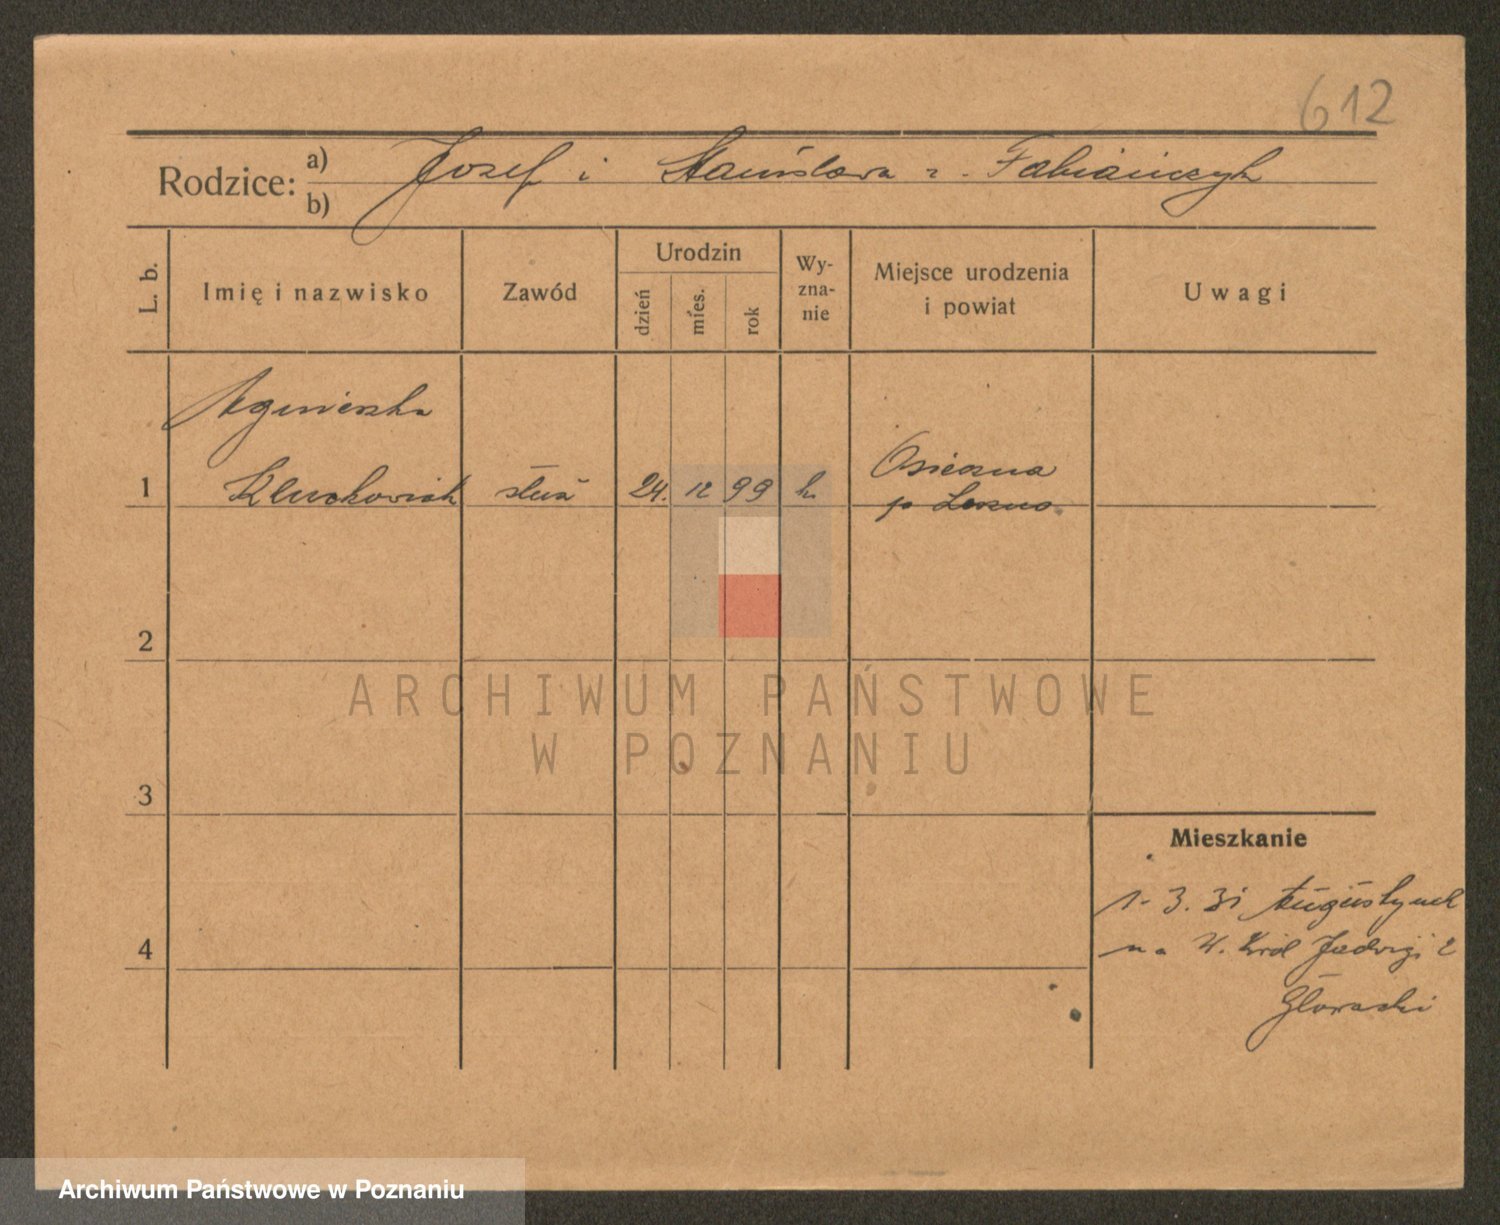 612
Rodzice: a) Józef i Stanisława z Fabiańczyk
b)
L. b.
Imię i nazwisko
Zawód
Urodzin
dzień
mies.
rok
Wy-
zna-
nie
Miejsce urodzenia
i powiat
Uwagi
Agnieszka
1 Kluczkowiak służ 24. 12 99 k.
Osieczna
p Leszno
2
3
4
Mieszkanie
1. 3. 31
na W. Król Jadwigi 2
Głowacki
ARCHIWUM PAŃSTWOWE
W POZNANIU
Archiwum Państwowe w Poznaniu